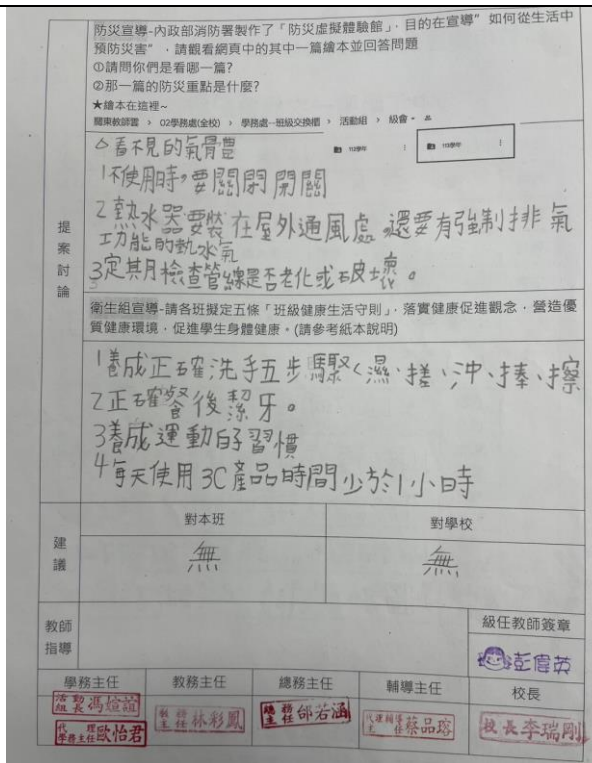 防災宣導-內政部消防署製作了「防災虛擬體驗館」，目的在宣導”如何從生活中
預防災害”，請觀看網頁中的其中一篇繪本並回答問題
①請問你們是看哪一篇?
②那一篇的防災重點是什麼?
★繪本在這裡~
關東教師雲 › 02學務處(全校) › 學務處--班級交換櫃 › 活動組 › 級會
113學年
113學年
看不見的氣骨豊
1不使用時，要關閉開關
2熱水器要裝在屋外通風處,還要有強制排氣
功能的熱水氣
3定其月檢查管線是否老化或破壞。
提案討論
衛生組宣導-請各班擬定五條「班級健康生活守則」，落實健康促進觀念，營造優
質健康環境，促進學生身體健康。(請參考紙本說明)
1養成正確洗手五步驟<濕、搓、沖、捧、擦
2正確餐後潔牙。
3養成運動的習慣
4每天使用3C產品時間少於1小時
建議
對本班
對學校
無
無
教師指導
級任教師簽章
學務主任
教務主任
總務主任
輔導主任
校長
活動組長馮煊蒩
代理學務主任歐怡君
教務主任林彩鳳
總務主任邰若涵
代理輔導主任蔡品瑢
校長李瑞剛